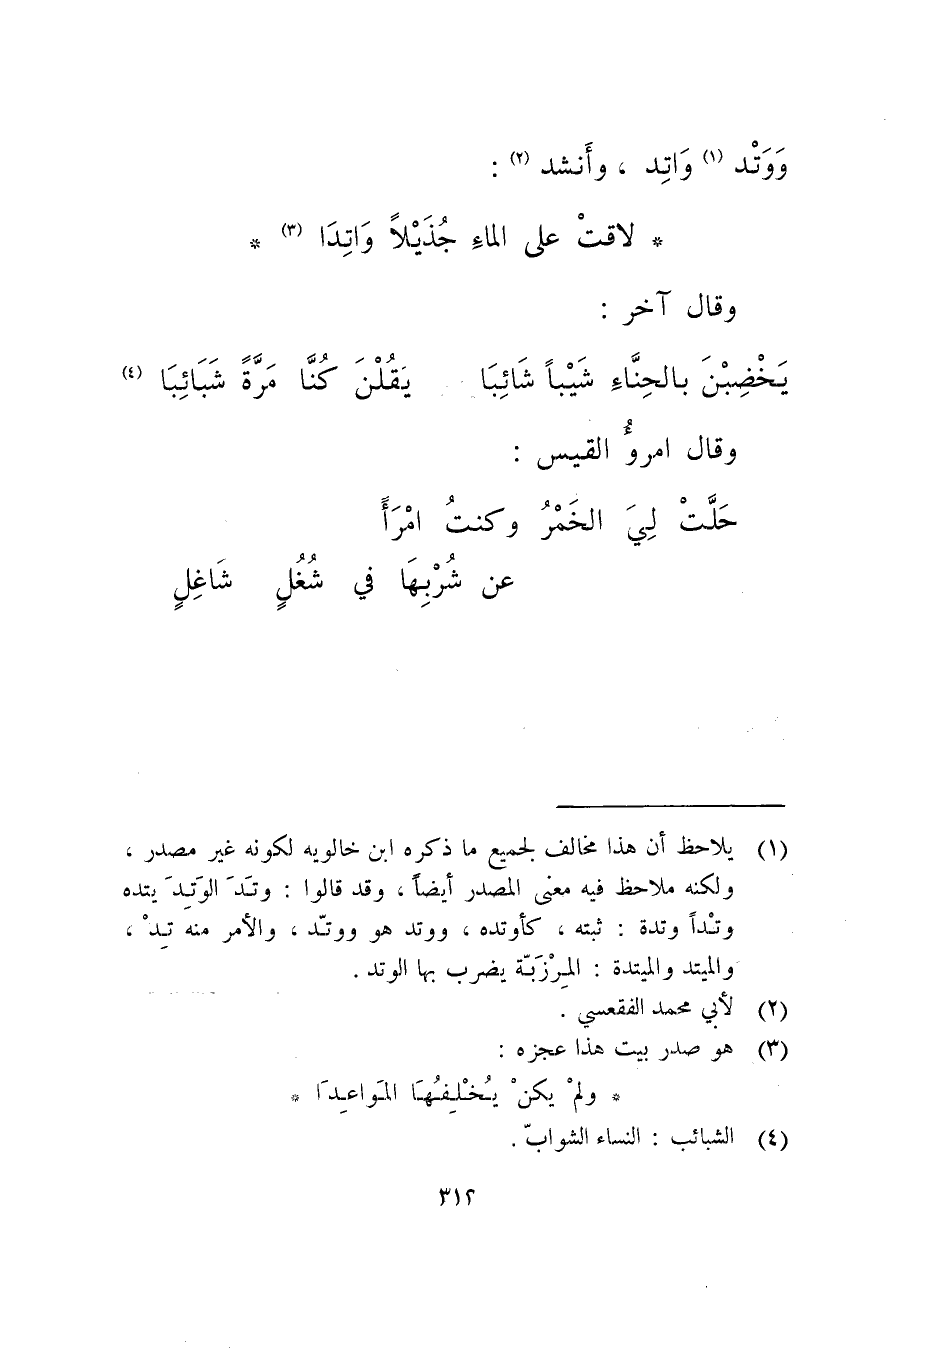 وَوَتْد (١) وَاتِد ، وأَنشد (٢) :
* لاقتْ على الماءِ جُذَيْلاً وَاتِدَا (٣) *
وقال آخر :
يَخْضِبْنَ بالحِنَّاءِ شَيْباً شَائِبَا يَقُلْنَ كُنَّا مَرَّةً شَبَائِبَا (٤)
وقال امروُّ القيس :
حَلَّتْ لِيَ الخَمْرُ وكنتُ امْرَأً
عن شُرْبِهَا في شُغُلٍ شَاغِلٍ
(١) يلاحظ أن هذا مخالف لجميع ما ذكره ابن خالويه لكونه غير مصدر ،
ولكنه ملاحظ فيه معنى المصدر أيضاً ، وقد قالوا : وتَدَ الوَتِدَ يتده
وتْداً وتدة : ثبته ، كأوتده ، ووتد هو ووتّد ، والأمر منه تِدْ ،
والميتد والميتدة : المِرْزَبّة يضرب بها الوتد .
(٢) لأبي محمد الفقعسي .
(٣) هو صدر بيت هذا عجزه :
* ولمْ يكنْ يُخْلِفُهَا المَواعِدَا *
(٤) الشبائب : النساء الشوابّ .
٣١٢